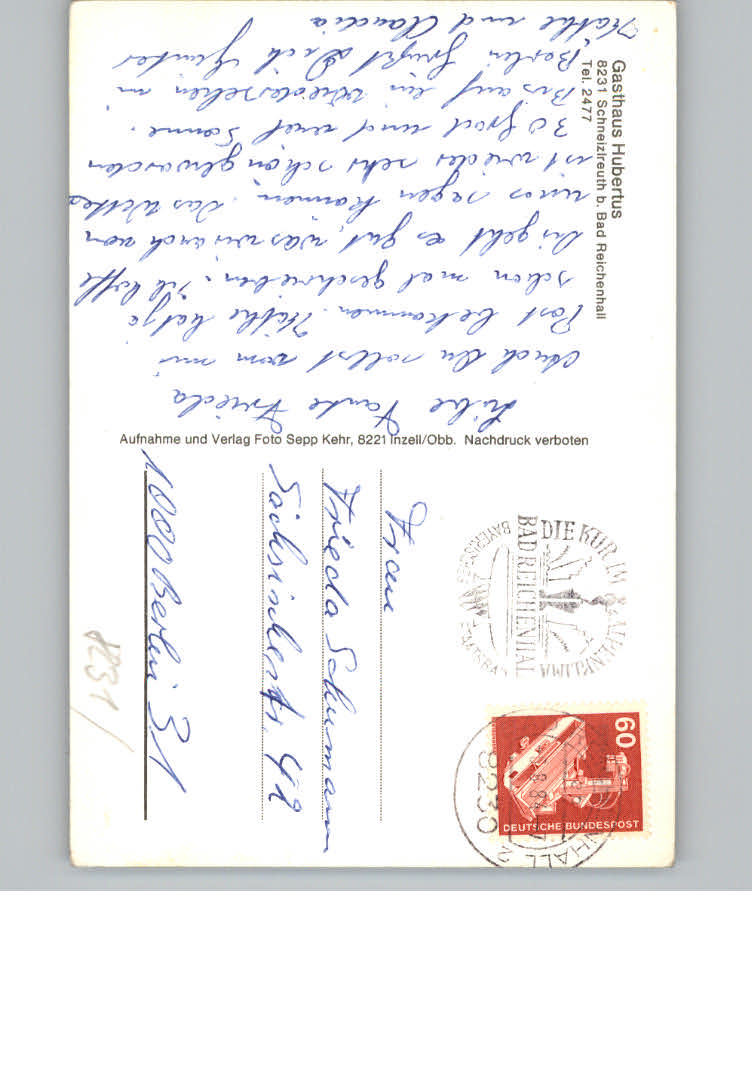 Gasthaus Hubertus
8231 Schneizlreuth b. Bad Reichenhall
Tel. 2477
Liebe Tante Frieda
Auch Du sollst von mir
Post bekommen. Käthe hat ja
schon mal geschrieben. Ich hoffe
Dir geht es gut, was wir auch von
uns sagen können. Das Wetter
ist wieder sehr schön geworden
30 Grad und viel Sonne.
Bis auf ein Wiedersehen in
Berlin grüßt Dich Günter
Käthe und Claudia
Aufnahme und Verlag Foto Sepp Kehr, 8221 Inzell/Obb. Nachdruck verboten
DIE KUR IM ALPENKLIMA
BAD REICHENHALL
BAYERISCHES STAATSBAD
60
DEUTSCHE BUNDESPOST
8230
2
Frau
Frieda Schumann
Sächsischestr. 42
1000 Berlin 31
8231